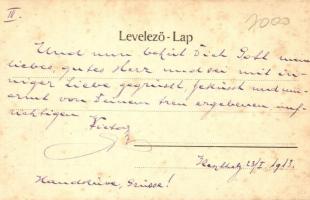 II.
7000
Levelező-Lap
Und nun behüt Dich Gott mein
liebes, gutes Herz und sei mit in-
niger Liebe gegrüsst, geküsst und um-
armt von Deinem treu ergebenen auf-
richtigen Victor
Keszthely 23/I 1913.
Handküsse, Grüsse!